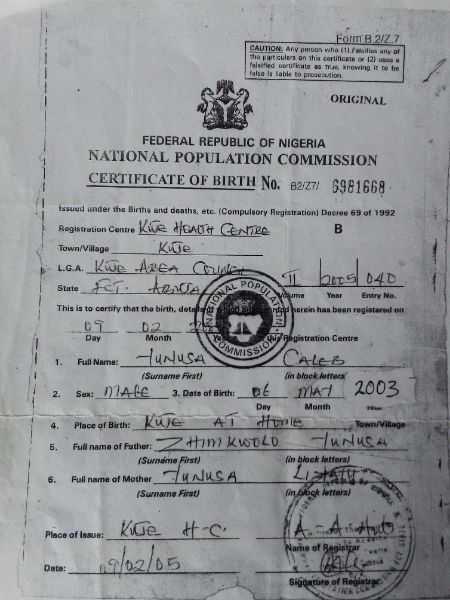 Form B.2/Z.7
CAUTION: Any person who (1) falsifies any of
the particulars on this certificate or (2) uses a
falsified certificate as true, knowing it to be
false is liable to prosecution.
ORIGINAL
FEDERAL REPUBLIC OF NIGERIA
NATIONAL POPULATION COMMISSION
CERTIFICATE OF BIRTH No. B2/Z7/ 6981668
Issued under the Births and deaths, etc. (Compulsory Registration) Decree 69 of 1992
Registration Centre KUJE HEALTH CENTRE B
Town/Village KUJE
L.G.A. KUJE AREA COUNCIL II 2005 040
State FCT. ABUJA Volume Year Entry No.
This is to certify that the birth, herein has been registered on
09 02
Day Month this Registration Centre
NATIONAL POPULATION COMMISSION
1. Full Name: YUNUSA CALEB
(Surname First) (in block letters)
2. Sex: MALE 3. Date of Birth: 06 MAY 2003
Day Month Year
4. Place of Birth: KUJE AT HOME Town/Village
5. Full name of Father: ZHIMKWOLO YUNUSA
(Surname First) (in block letters)
6. Full name of Mother YUNUSA
(Surname First) (in block letters)
Place of Issue: KUJE H-C.
Name of Registrar
Date: 09/02/05
Signature of Registrar